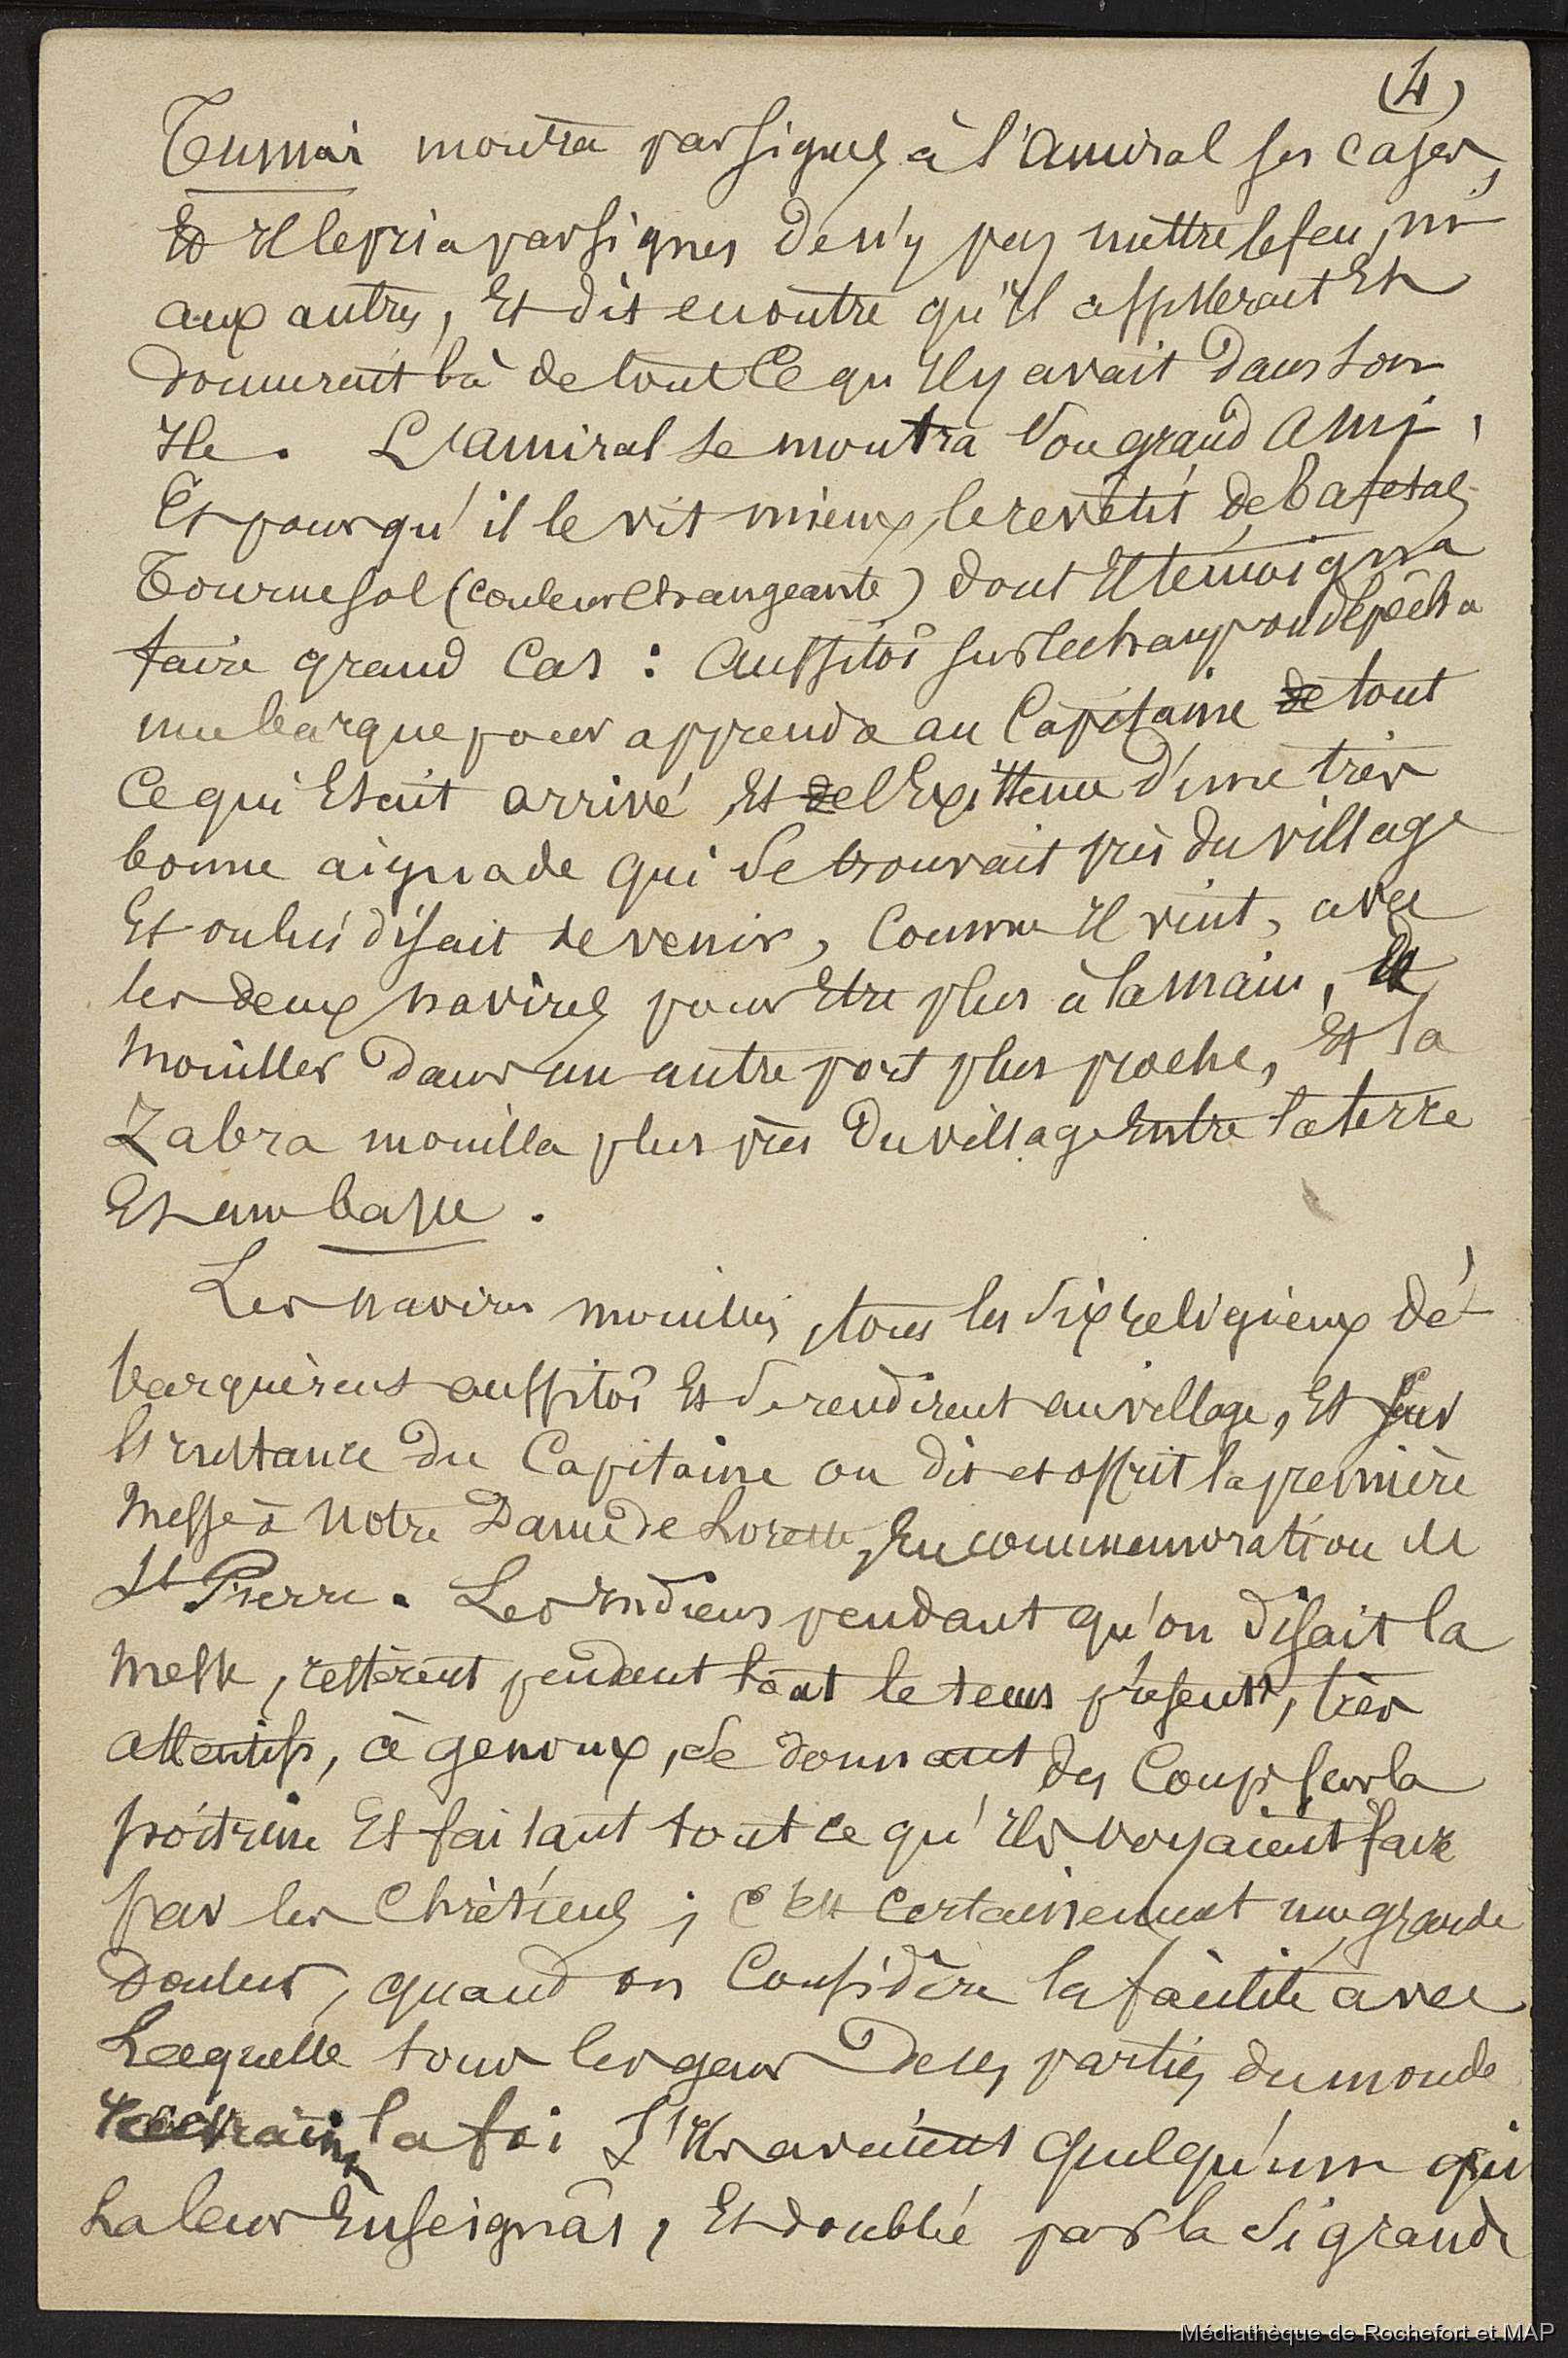 (4)
Tumai montra par signes à l'Amiral ses cases,
Et Il le pria par signes de n'y pas mettre le feu, ni
aux autres, Et dit en outre qu'il appellerait Et
donnerait là de tout ce qu'Il y avait dans son
Ile. L'Amiral se montra son grand Ami,
Et pour qu'il le vit mieux, le revêtit de tafetas
Tournesol (couleur changeante) dont Il témoigna
faire grand cas : Aussitôt sur le champ on dépêcha
une barque pour apprendre au Capitaine de tout
ce qui Etait arrivé, Et de l'Existence d'une très
bonne aiguade qui se trouvait près du village
Et on lui disait de venir, comme Il vint, avec
les deux navires pour Etre plus à la main, Et
mouiller dans un autre port plus proche, Et la
Zabra mouilla plus près du village Entre la terre
Et une basse.
Les navires mouillés, tous les six religieux dé-
barquèrent aussitôt Et se rendirent au village, Et sur
l'Instance du Capitaine on dit et offrit la première
Messe à Notre Dame de Lorette, En commemoration de
St Pierre. Les Indiens pendant qu'on disait la
Messe, restèrent pendant tout le tems présents, très
attentifs, à genoux, se donnant des coups sur la
poitrine Et faisant tout ce qu'Ils voyaient faire
par les Chrètiens ; C'Est certainement une grande
Douleur, quand on considère la facilité avec
Laquelle tous les gens de ces parties du monde
la foi S'Ils avaient quelqu'un qui
La leur Enseignât, Et doublé par la si grande
Médiathèque de Rochefort et MAP